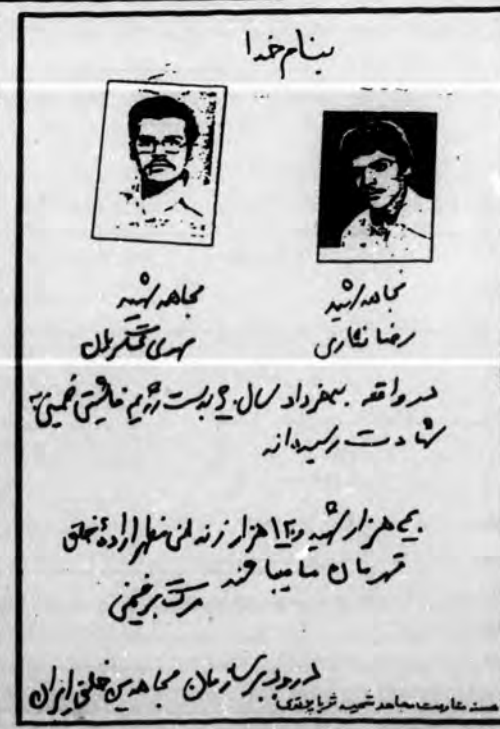 بنام خدا
مجاهد شهید
رضا نثاری
مجاهد شهید
مهدی
در واقعه ۳۰ خرداد سال ۶۰ بدست رژیم فاشیستی خمینی به
شهادت رسیده‌اند
هزار شهید و ۱۲۰ هزار زندانی مظهر اراده خلق
قهرمان ما میباشند
مرگ بر خمینی
درود بر سازمان مجاهدین خلق ایران
هسته مقاومت مجاهد شهید ثریا